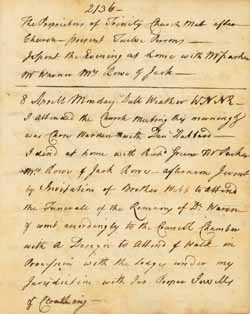 2136—
The Proprietors of Trinity Church Met after
Church— Present Twelve Persons—
I spent the Evening at home with Mr Parker
Mr Warner Mrs Rowe & Jack—
8 Aprill Monday Dull Weather W.N.N.E.
I attended the Church Meeting this morning &
was Chose Warden with Dan Hubbard—
I dind at home with Revd. Green Mr Parker
Mrs Rowe & Jack Rowe— afternoon I went
by Invitation of Brother Webb to attend
the Funerall of the Remains of Dr Warren
& went accordingly to the Councill Chamber
with a Design to Attend & Walk in
Procession with the Lodges under my
Jurisdiction with Our Proper Jewells
& Cloathing—